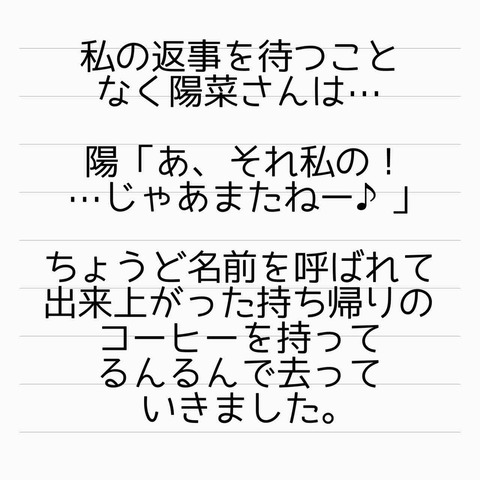 私の返事を待つこと
なく陽菜さんは…
陽「あ、それ私の！
…じゃあまたねー♪」
ちょうど名前を呼ばれて
出来上がった持ち帰りの
コーヒーを持って
るんるんで去って
いきました。